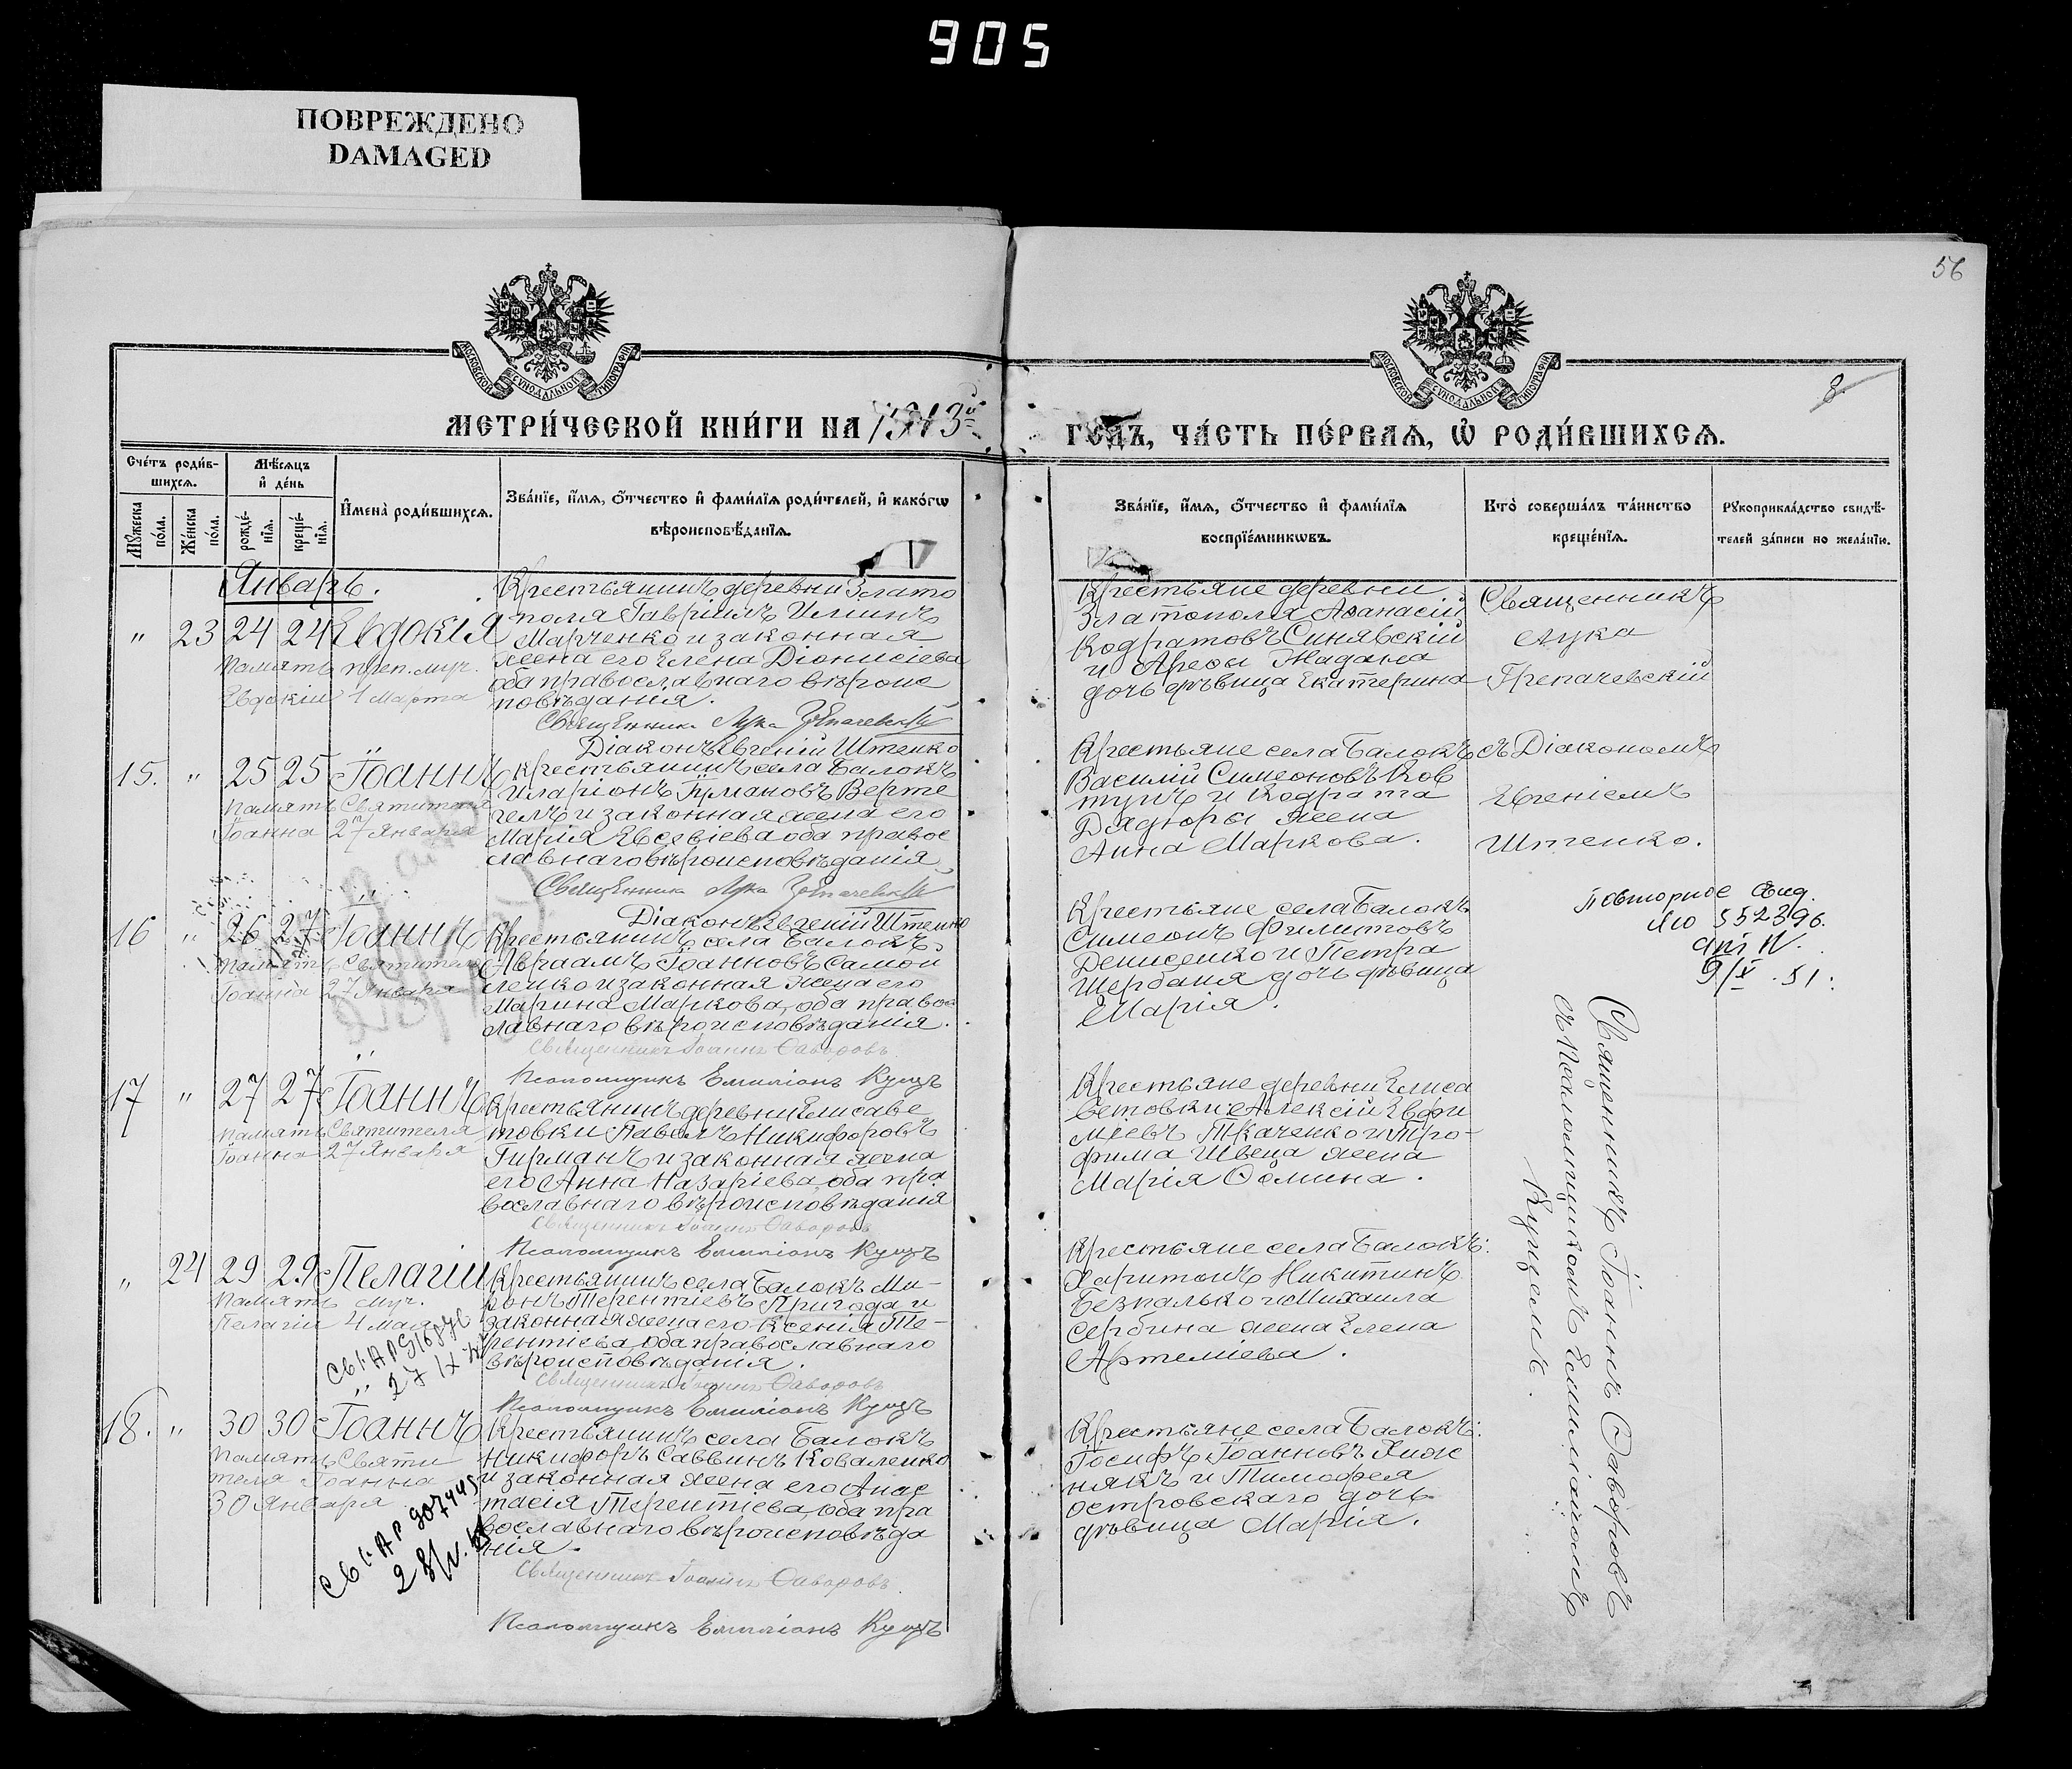 905
ПОВРЕЖДЕНО
DAMAGED
56
МОСКОВСКОЙ СѴНОДАЛЬНОЙ ТИПОГРАФІИ
МОСКОВСКОЙ СѴНОДАЛЬНОЙ ТИПОГРАФІИ
8
МЕТРИ́ЧЕСКОЙ КНИ́ГИ НА 1913й
ГОДЪ, ЧА́СТЬ ПЕ́РВАѦ, Ѡ҆ РОДИ́ВШИХСѦ.
Сче́тъ роди́в-
шихсѧ.
Мѣ́сѧцъ
и҆ де́нь
Мꙋ́жеска
по́ла.
Же́нска
по́ла.
рожде́-
нїѧ.
креще́-
нїѧ.
И҆мена̀ роди́вшихсѧ.
Зва́нїе, и҆́мѧ, ѻ҆́тчество и҆ фами́лїѧ роди́телей, и҆ како́гѡ
вѣроисповѣ́данїѧ.
Зва́нїе, и҆́мѧ, ѻ҆́тчество и҆ фами́лїѧ
воспрїе́мникѡвъ.
Кто̀ соверша́лъ та́инство
креще́нїѧ.
Рꙋкоприкла́дство свидѣ́-
телей за́писи по жела́нїю.
Январь.
" 23 24 24 Евдокія
Память преп. муч.
Евдокіи 1 Марта
Крестьянинъ деревни Злато
поля Гавріилъ Илиинъ
Марченко и законная
жена его Елена Діонисіева
оба православнаго вѣроис
повѣданія.
Священникъ Лука Грепачевскій
Діаконъ Евгеній Штепко
Крестьяне деревни
Златополя Аѳанасій
Кодратовъ Синявскій
и Арефы Жадана
дочь дѣвица Екатерина
Священникъ
Лука
Грепачевскій
15. " 25 25 Іоаннъ
Память Святителя
Іоанна 27 Января
Крестьянинъ села Балокъ
Иларіонъ Германовъ Верте
гелъ и законная жена его
Марія Евсевіева оба правос
лавнаго вѣроисповѣданія
Священникъ Лука Грепачевскій
Діаконъ Евгеній Штепко
Крестьяне села Балокъ
Василій Симеоновъ Ков
тунъ и Кодрата
Дядюры жена
Анна Маркова.
съ Діакономъ
Евгеніемъ
Штепко.
16 " 26 27 Іоаннъ
Память Святителя
Іоанна 27 Января
Крестьянинъ села Балокъ
Авраамъ Іоанновъ Самой
ленко и законная жена его
Марина Маркова, оба правос
лавнаго вѣроисповѣданія.
Священникъ Іоаннъ Ѳаворовъ
Псаломщикъ Емиліанъ Кущъ
Крестьяне села Балокъ
Симеонъ Филиповъ
Денисенко и Петра
Щербаня дочь дѣвица
Марія.
Повторное свид.
552396.
9/X . 51.
17 " 27 27 Іоаннъ
Память Святителя
Іоанна 27 Января
Крестьянинъ деревни Елисаве
товки Павелъ Никифоровъ
Гирманъ и законная жена
его Анна Назаріева, оба пра
вославнаго вѣроисповѣданія
Священникъ Іоаннъ Ѳаворовъ
Псаломщикъ Емиліанъ Кущъ
Крестьяне деревни Елиса
ветовки: Алексій Евфи
міевъ Ткаченко и Тро-
фима Швеца жена
Марія Ѳомина.
Священникъ Іоаннъ Ѳаворовъ
съ Псаломщикомъ Емиліаномъ
Кущемъ.
" 24 29 29 Пелагіи
Память муч.
Пелагіи 4 Мая
Крестьянинъ села Балокъ Ми-
ронъ Терентіевъ Пригода и
законная жена его Ксенія Те-
рентіева, оба православнаго
вѣроисповѣданія.
Священникъ Іоаннъ Ѳаворовъ
Псаломщикъ Емиліанъ Кущъ
Крестьяне села Балокъ:
Харитонъ Никитинъ
Безпалько и Михаила
Сербина жена Елена
Артеміева.
18. " 30 30 Іоаннъ
Память Святи
теля Іоанна
30 Января
Крестьянинъ села Балокъ
Никифоръ Саввинъ Коваленко
и законная жена его Анас
тасія Терентіева, оба пра
вославнаго вѣроисповѣда
нія.
Священникъ Іоаннъ Ѳаворовъ.
Псаломщикъ Емиліанъ Кущъ
Крестьяне села Балокъ:
Іосифъ Іоанновъ Хиж
някъ и Тимофея
Островскаго дочь
дѣвица Марія.